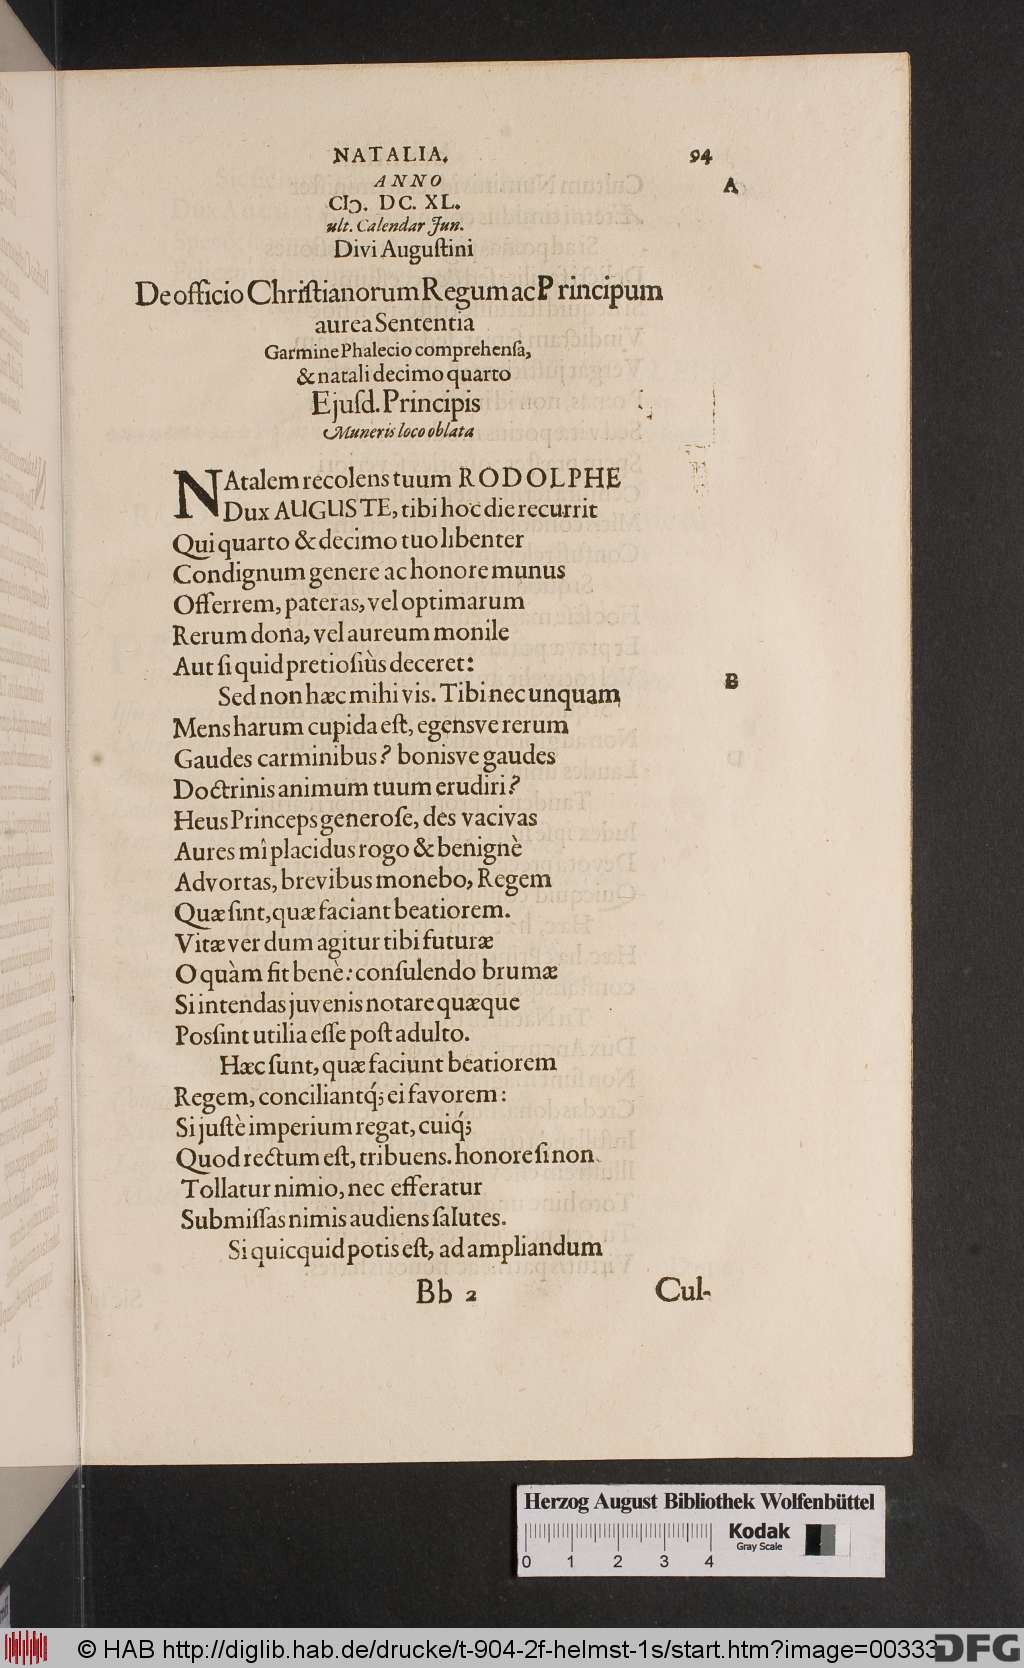 NATALIA. 94
ANNO
CIↃ. DC. XL.
A
ult. Calendar Jun.
Divi Auguſtini
De officio Chriſtianorum Regum ac Principum
aurea Sententia
Garmine Phalecio comprehenſa,
& natali decimo quarto
Ejuſd. Principis
Muneris loco oblata
NAtalem recolens tuum RODOLPHE
Dux AUGUSTE, tibi hoc die recurrit
Qui quarto & decimo tuo libenter
Condignum genere ac honore munus
Offerrem, pateras, vel optimarum
Rerum dona, vel aureum monile
Aut ſi quid pretioſiùs deceret:
Sed non hæc mihi vis. Tibi nec unquam
B
Mens harum cupida eſt, egensve rerum
Gaudes carminibus? bonisve gaudes
Doctrinis animum tuum erudiri?
Heus Princeps generoſe, des vacivas
Aures mî placidus rogo & benignè
Advortas, brevibus monebo, Regem
Quæ ſint, quæ faciant beatiorem.
Vitæ ver dum agitur tibi futuræ
O quàm fit benè: conſulendo brumæ
Si intendas juvenis notare quæque
Posſint utilia eſſe poſt adulto.
Hæc ſunt, quæ faciunt beatiorem
Regem, conciliantq́; ei favorem:
Si juſtè imperium regat, cuiq́;
Quod rectum eſt, tribuens. honore ſi non
Tollatur nimio, nec efferatur
Submiſſas nimis audiens ſalutes.
Si quicquid potis eſt, ad ampliandum
Bb 2 Cul-
Herzog August Bibliothek Wolfenbüttel
Kodak
Gray Scale
0 1 2 3 4
© HAB http://diglib.hab.de/drucke/t-904-2f-helmst-1s/start.htm?image=00333
DFG